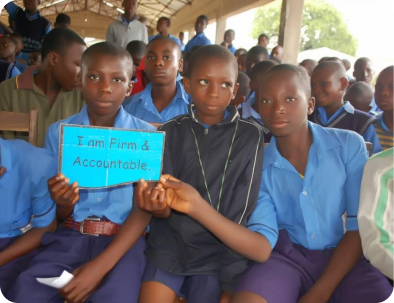 I am Firm &
Accountable.